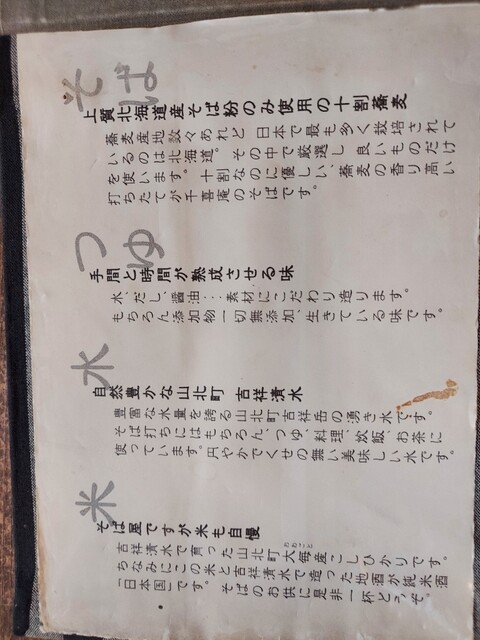 そば
上質北海道産そば粉のみ使用の十割蕎麦
蕎麦産地数々あれど 日本で最も多く栽培されて
いるのは北海道。その中で厳選し良いものだけ
を使います。十割なのに優しい、蕎麦の香り高い
打ちたてが千喜庵のそばです。
つゆ
手間と時間が熟成させる味
水、だし、醤油…素材にこだわり造ります。
もちろん添加物一切無添加、生きている味です。
水
自然豊かな山北町 吉祥清水
豊富な水量を誇る山北町吉祥岳の湧き水です。
そば打ちにはもちろん、つゆ、料理、炊飯、お茶に
使っています。円やかでくせの無い美味しい水です。
米
そば屋ですが米も自慢
吉祥清水で育った山北町大毎産こしひかりです。
おおごと
ちなみにこの米と吉祥清水で造った地酒が純米酒
「日本国」です。そばのお供に是非一杯どうぞ。